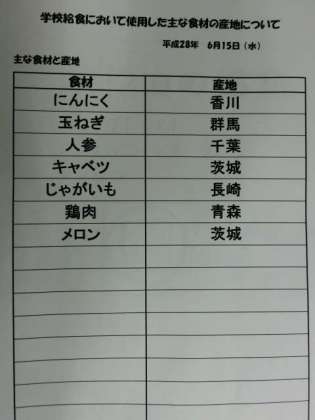 学校給食において使用した主な食材の産地について
平成28年　6月15日（水）
主な食材と産地
食材　産地
にんにく　香川
玉ねぎ　群馬
人参　千葉
キャベツ　茨城
じゃがいも　長崎
鶏肉　青森
メロン　茨城